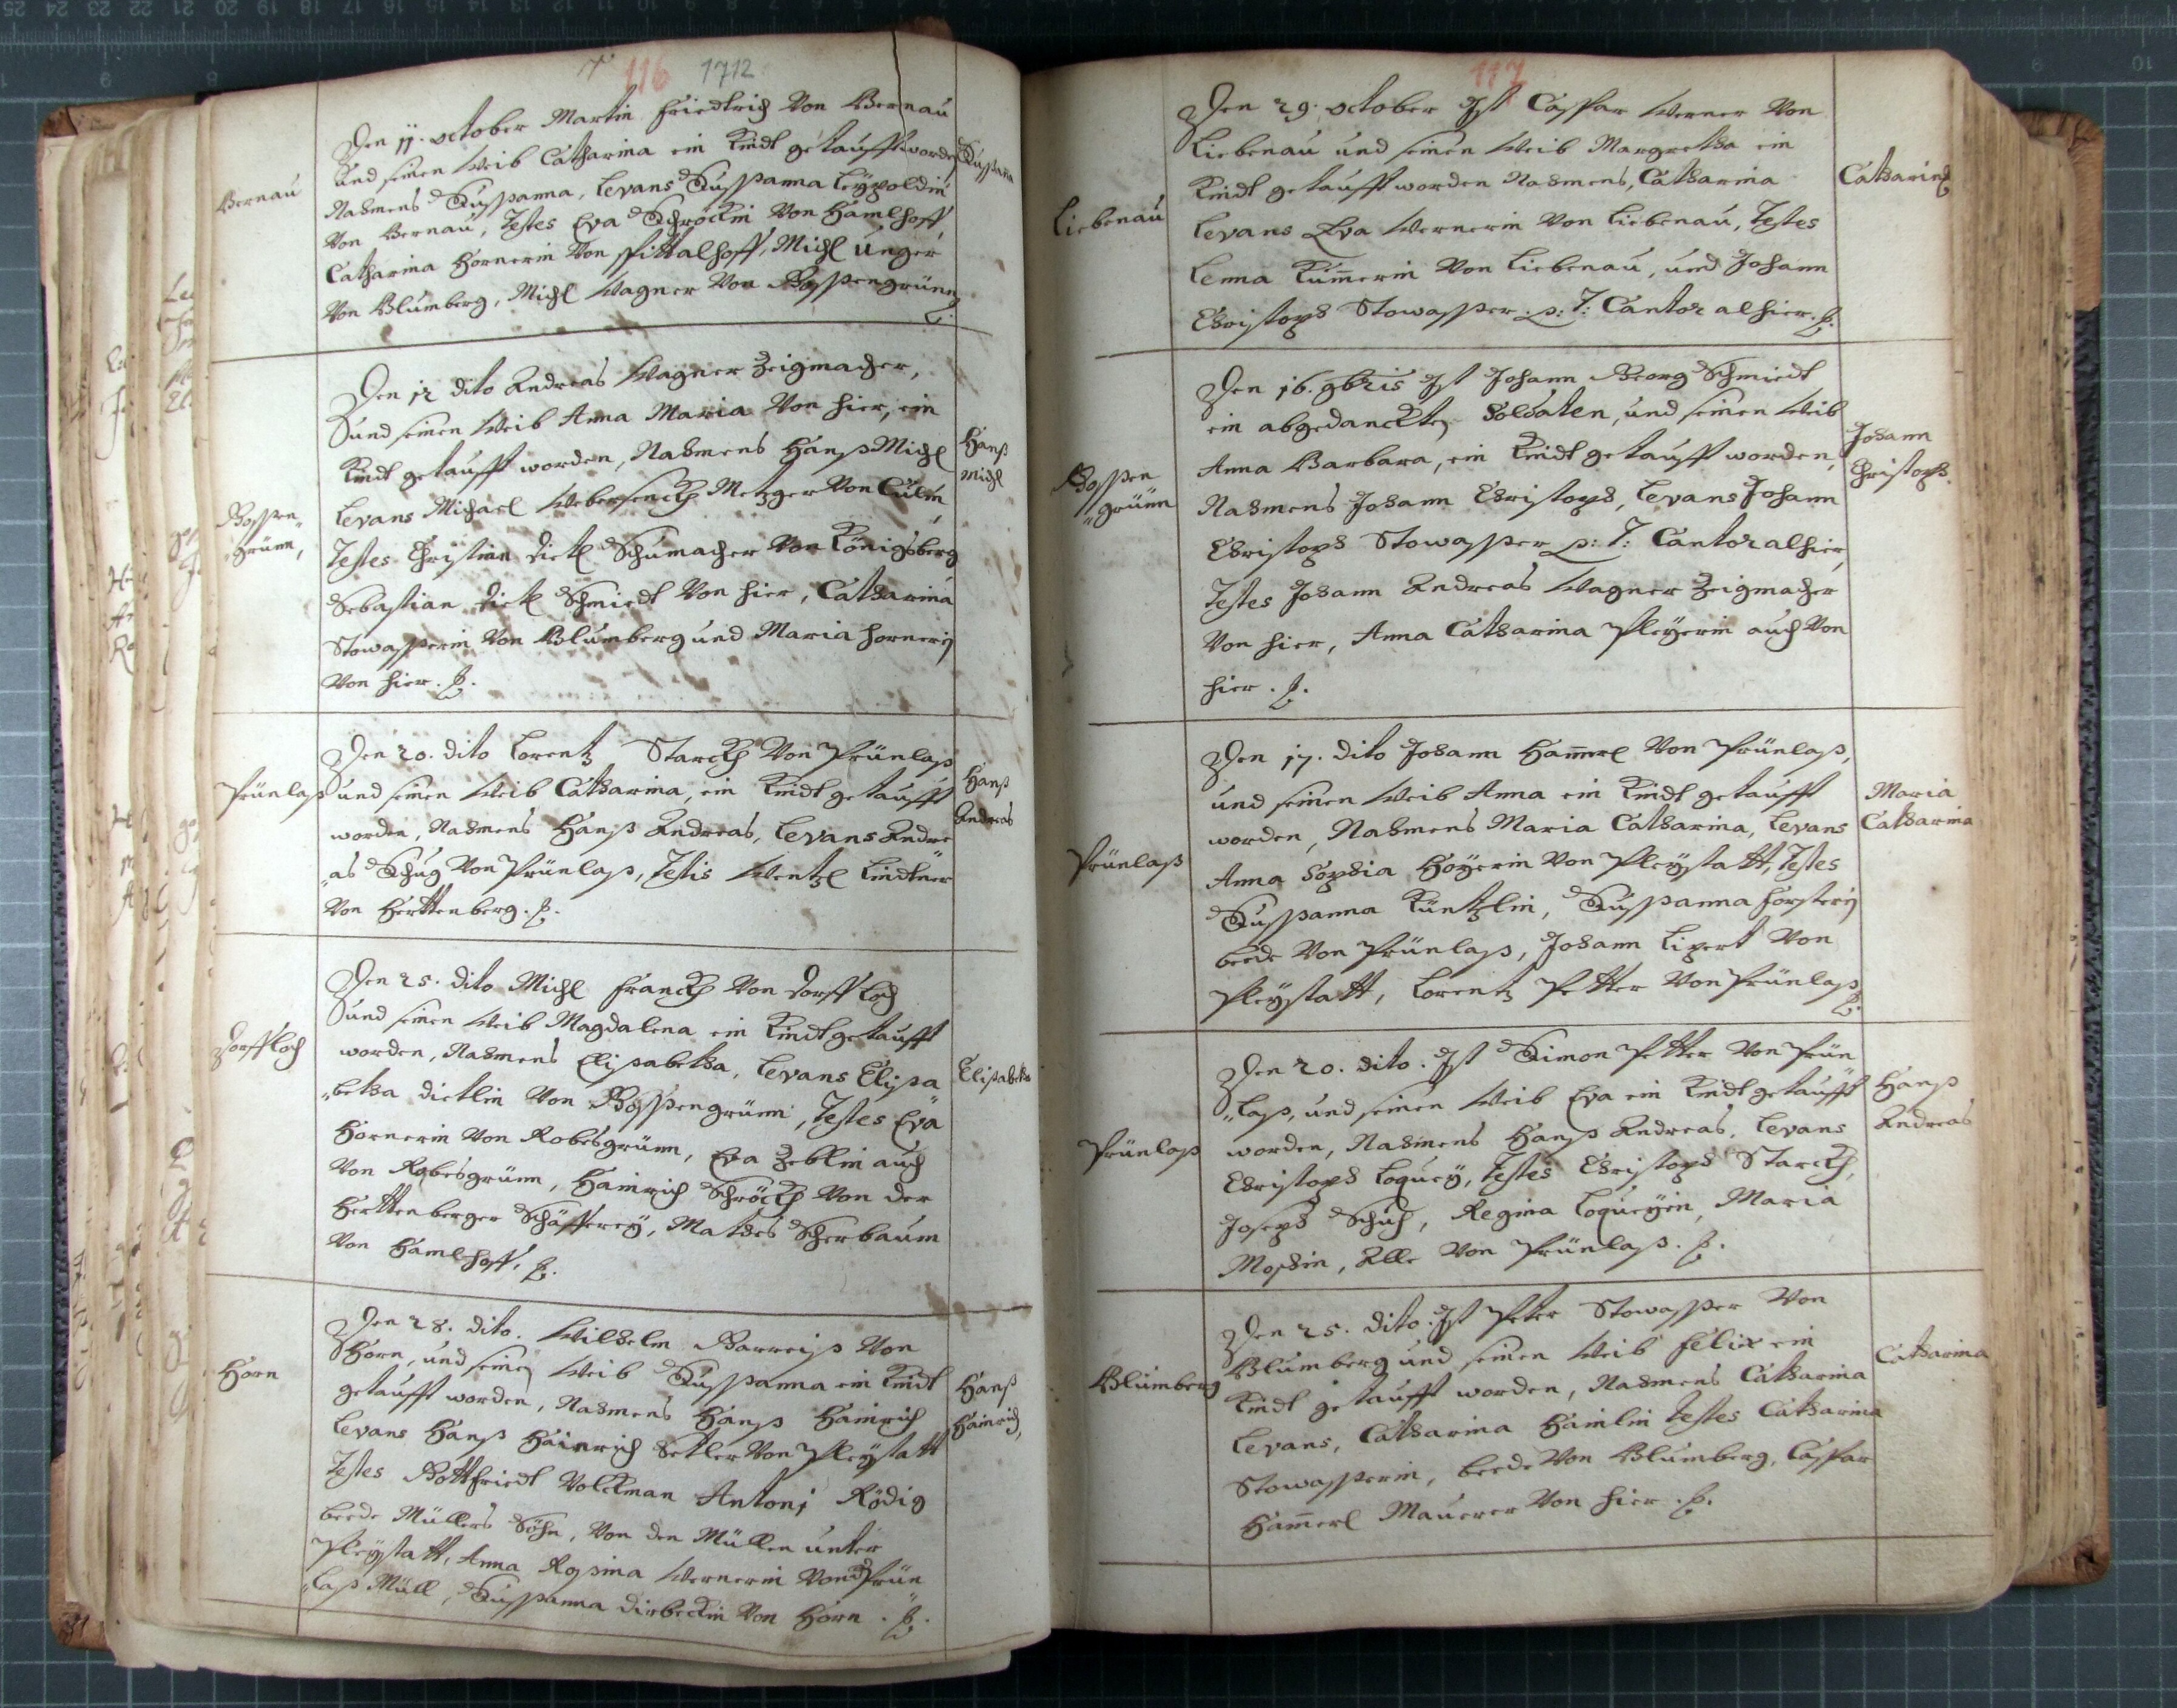 116 1712
Bernau
Den 11. october Martin Friedrich Von Bernau
und seinen Weib Catharina ein Kindt getaufft worden
Nahmens Sussanna, Levans Sussanna Leÿpoldin
Von Bernau, Testes Eva Schröckin Von Hamlhoff,
Catharina Hornerin Von Spittalhoff, Michl Unger
Von Blumberg, Michl Wagner Von Gossengrünn
Sussana
Gossen„
grünn,
Den 12 dito Andreas Wagner Zeigmacher,
und seinen Weib Anna Maria Von hier, ein
Kindt getaufft worden, Nahmens Hanß Michl
Levans Michael Metzger Von Culm,
Testes Christian Dietl Schumacher Von Königsberg
Sebastian Dietl Schmiedt Von hier, Catharina
Stowasserin Von Blumberg und Maria Hornerin
Von hier.
Hanß
Michl
Prünlaß
Den 20. dito Lorentz Starckh Von Prünlaß
und seinen Weib Catharina, ein Kindt getaufft
worden, Nahmens Hanß Andreas, Levans Andre
„as Schug Von Prünlaß, Testis Wentzl Lindtner
Von Herttenberg.
Hanß
Andreas
Dorffloch
Den 25. dito Michl Franckh Von Dorff loch
und seinen Weib Magdalena ein Kindt getaufft
worden, Nahmens Elisabetha, Levans Elisa
„betha Dietlin Von Gossengrünn, Testes Eva
Hornerin Von Robesgrünn, Eva Zeblin auch
Von Robesgrünn, Hainrich Schröckh Von der
Herttenberger Schäfferey, Mathes Scherbaum
Von Hamlhoff,
Elisabeth
Horn
Den 28. dito. Wilhelm Barreiß Von
Horn, und seinen Weib Sussanna ein Kindt
getaufft worden, Nahmens Hanß Hainrich
Levans Hanß Hainrich Setler Von Pleÿstatt
Testes Gottfriedt Volckman Antonj Rödig
beede Müllers Söhn, Von den Müllen unter
Pleÿstatt, Anna Rosina Wernerin Von Prün
„laß Müll, Sussanna Dirbeckin Von Horn.
Hanß
Hainrich,
117
Liebenau
Den 29. october Ist Caspar Werner Von
Liebenau und seinen Weib Margretha ein
Kindt getaufft worden Nahmens, Catharina
Levans Eva Wernerin Von Liebenau, Testes
Lenna Kum̄erin Von Liebenau, und Johann
Christoph Stowasser p: T: Cantor alhier.
Catharina
Gossen
„grünn
Den 16. 9bris Ist Johann Georg Schmiedt
ein abgedanckten Soldaten, und seinen Weib
Anna Barbara, ein Kindt getaufft worden,
Nahmens Johann Christoph, Levans Johann
Christoph Stowasser p: T: Cantor alhier,
Testes Johann Andreas Wagner Zeigmacher
Von hier, Anna Catharina Pleÿerin auch Von
hier.
Johann
Christoph.
Prünlaß
Den 17. dito Johann Ham̄erl Von Prünlaß,
und seinen Weib Anna ein Kindt getaufft
worden, Nahmens Maria Catharina, Levans
Anna Sophia Hoÿerin Von Pleÿstatt, Testes
Sussanna Küntzlin, Sussanna Forsterin
beede Von Prünlaß, Johann Lipert Von
Pleÿstatt, Lorentz Petter Von Prünlaß
Maria
Catharina
Prünlaß
Den 20. dito. Ist Simon Petter Von Prün
„laß, und seinen Weib Eva ein Kindt getaufft
worden, Nahmens Hanß Andreas, Levans
Christoph Loqueÿ, Testes Christoph Starckh,
Joseph Schuh, Regina Loqueÿin, Maria
Alle Von Prünlaß.
Hanß
Andreas
Blumberg
Den 25. dito. Ist Peter Stowasser Von
Blumberg und seinen Weib Felix ein
Kindt getaufft worden, Nahmens Catharina
Levans, Catharina Hainlin Testes Catharina
Stowasserin, beede Von Blumberg, Caspar
Ham̄erl Maurer Von hier.
Catharina